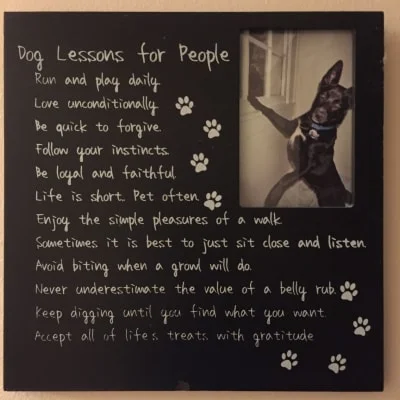 Dog Lessons for People
Run and play daily.
Love unconditionally.
Be quick to forgive.
Follow your instincts.
Be loyal and faithful.
Life is short. Pet often.
Enjoy the simple pleasures of a walk.
Sometimes it is best to just sit close and listen.
Avoid biting when a growl will do.
Never underestimate the value of a belly rub.
Keep digging until you find what you want.
Accept all of life's treats with gratitude